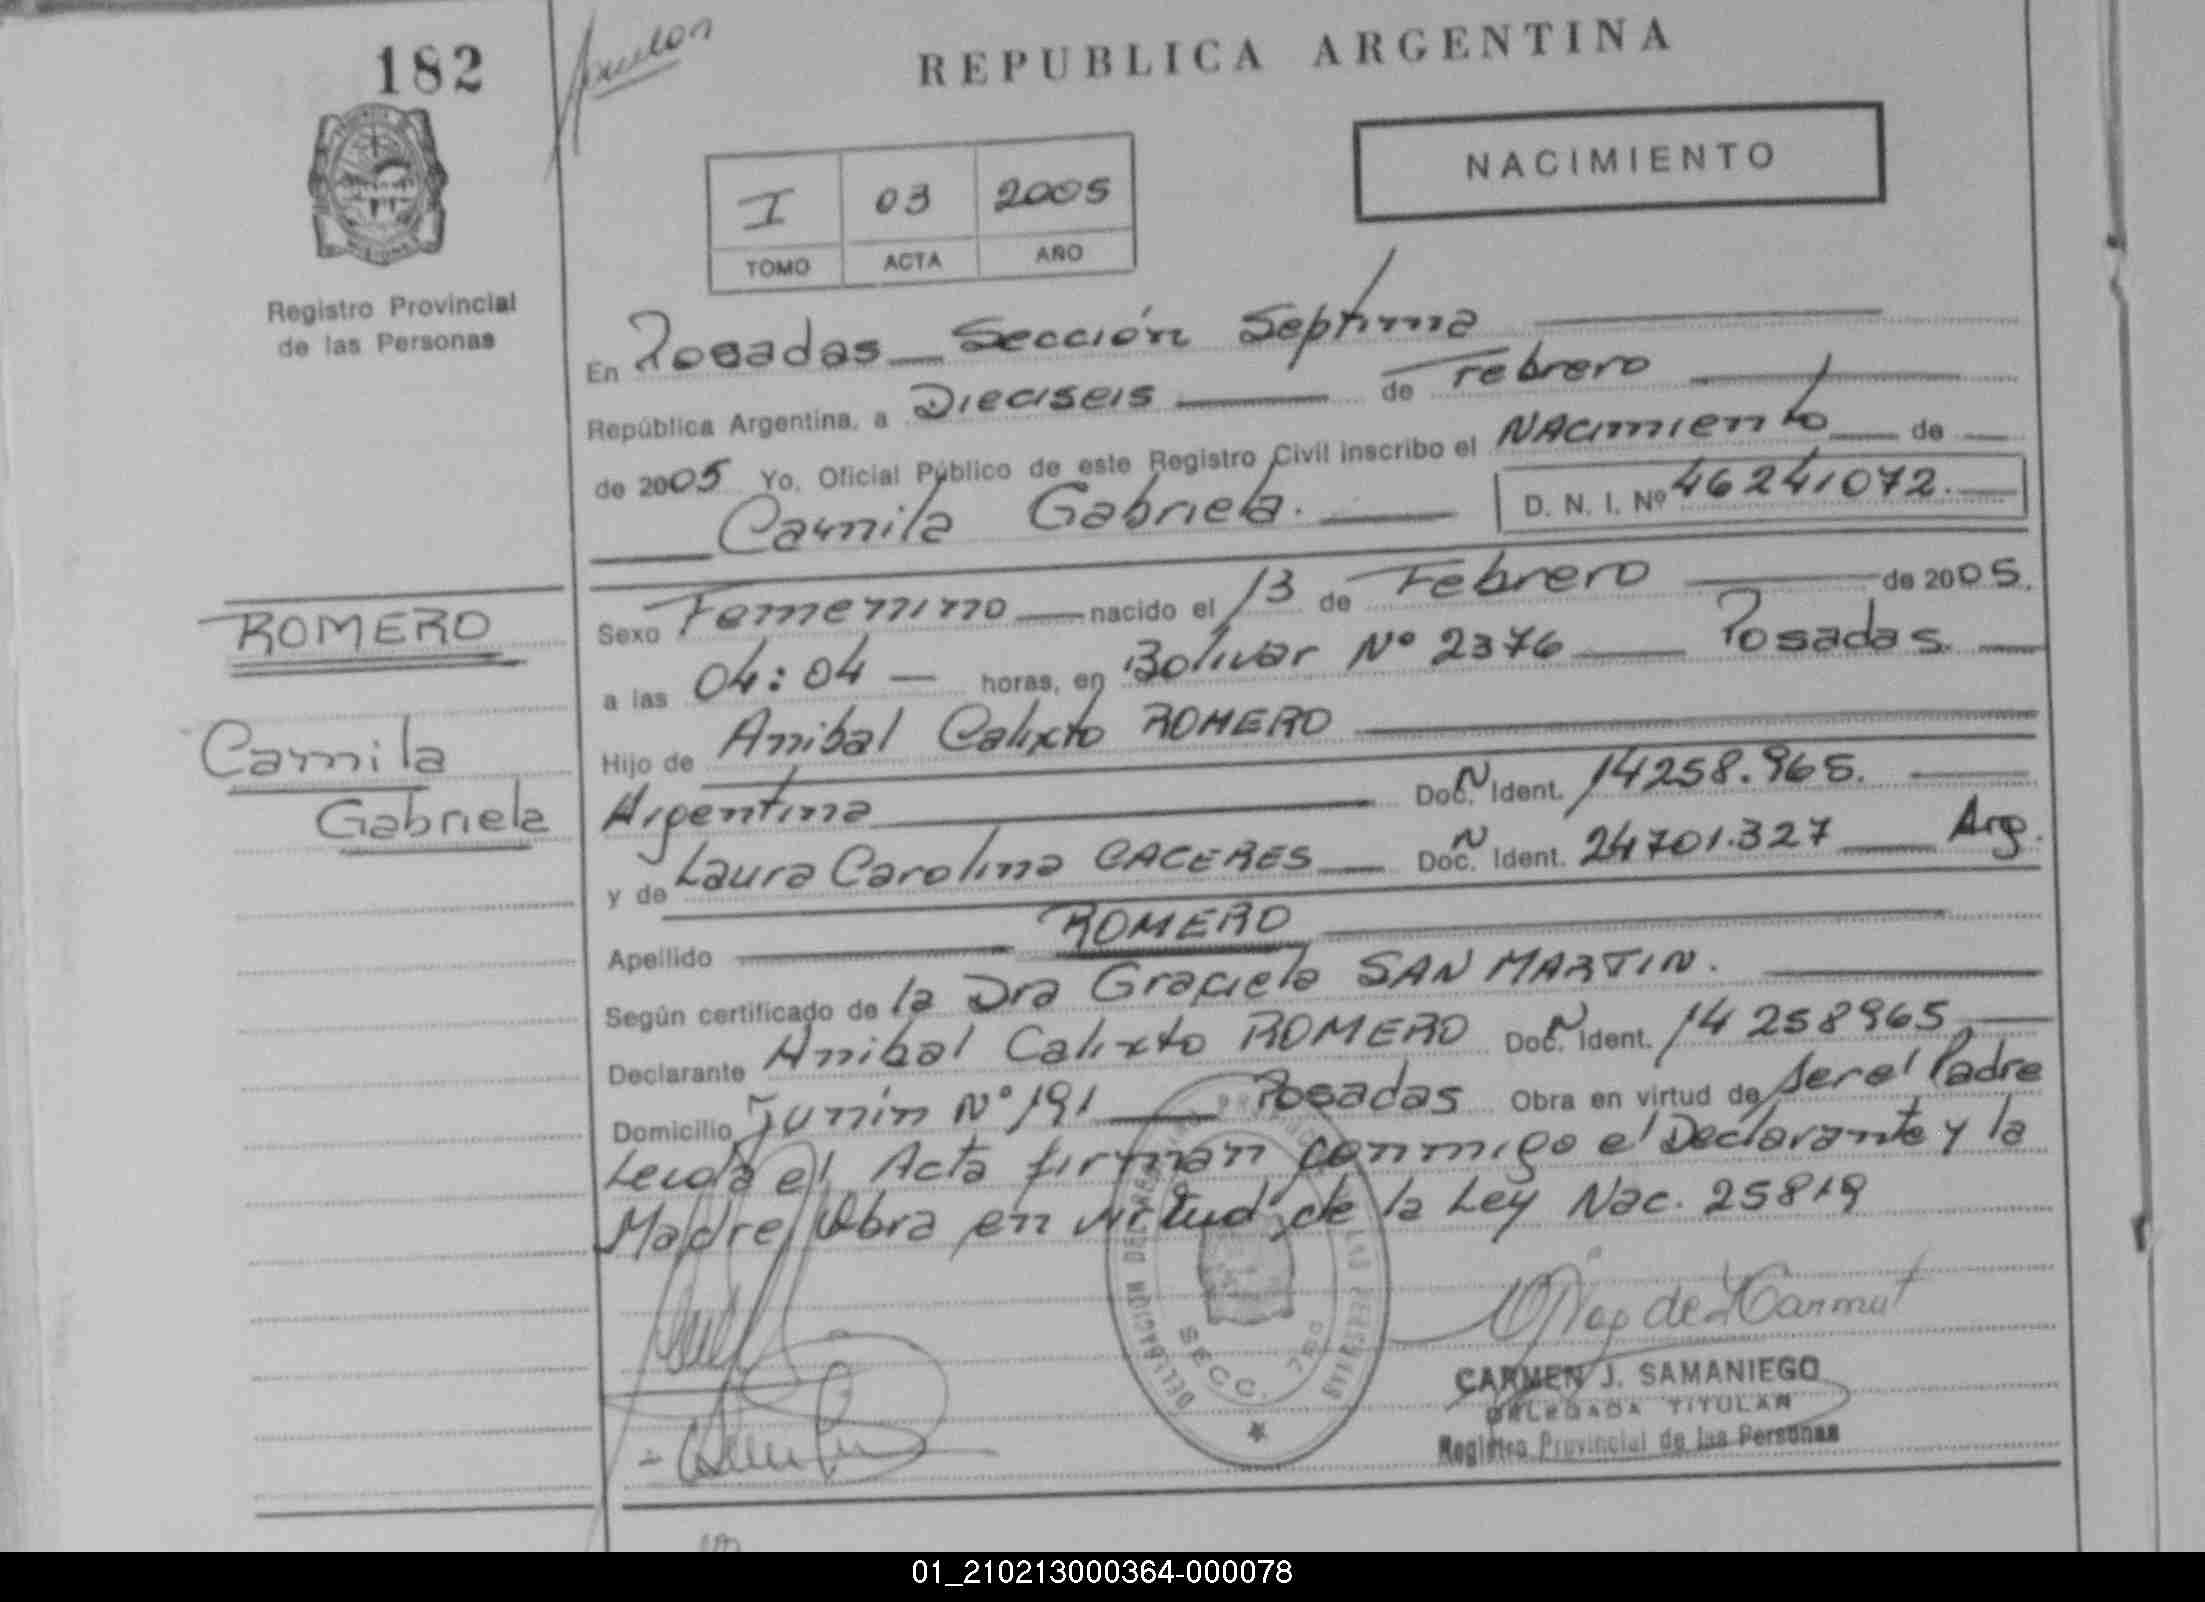 182
REPUBLICA ARGENTINA
NACIMIENTO
I 03 2005
TOMO ACTA AÑO
Registro Provincial
de las Personas
En Posadas Sección Septima
República Argentina, a Dieciseis de Febrero
de 2005 Yo, Oficial Público de este Registro Civil inscribo el NAcimiento de
Camila Gabriela. D. N. I. Nº 46241072.
ROMERO
Camila
Gabriela
Sexo Femenino nacido el 13 de Febrero de 2005.
a las 04:04 horas, en Bolivar Nº 2376 Posadas.
Hijo de Anibal Calixto ROMERO
Argentina Doc. N Ident. 14258.965.
y de Laura Carolina CACERES Doc. N Ident. 24701.327 Arg.
Apellido ROMERO
Según certificado de la Dra Graciela SAN MARTIN.
Declarante Anibal Calixto ROMERO Doc. N Ident. 14258965
Domicilio Junín Nº 191 Posadas Obra en virtud de ser el Padre
Leida el Acta firman conmigo el Declarante y la
Madre Obra en virtud de la Ley Nac. 25819
SECC. 7
CARMEN J. SAMANIEGO
DELEGADA TITULAR
Registro Provincial de las Personas
01_210213000364-000078